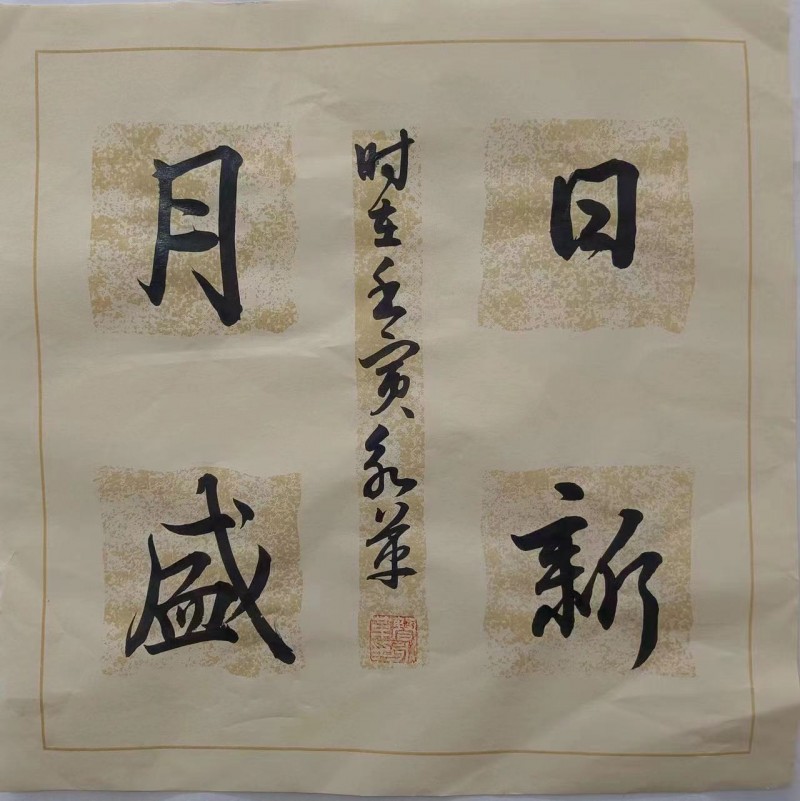 日新
月盛
时在壬寅永革